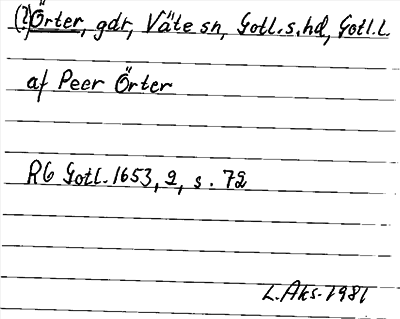 (?)Örter, gdr, Väte sn, Gotl.s.hd, Gotl.l.
af Peer Örter
RG Gotl. 1653, 2, s. 72
L. Aks. 1981